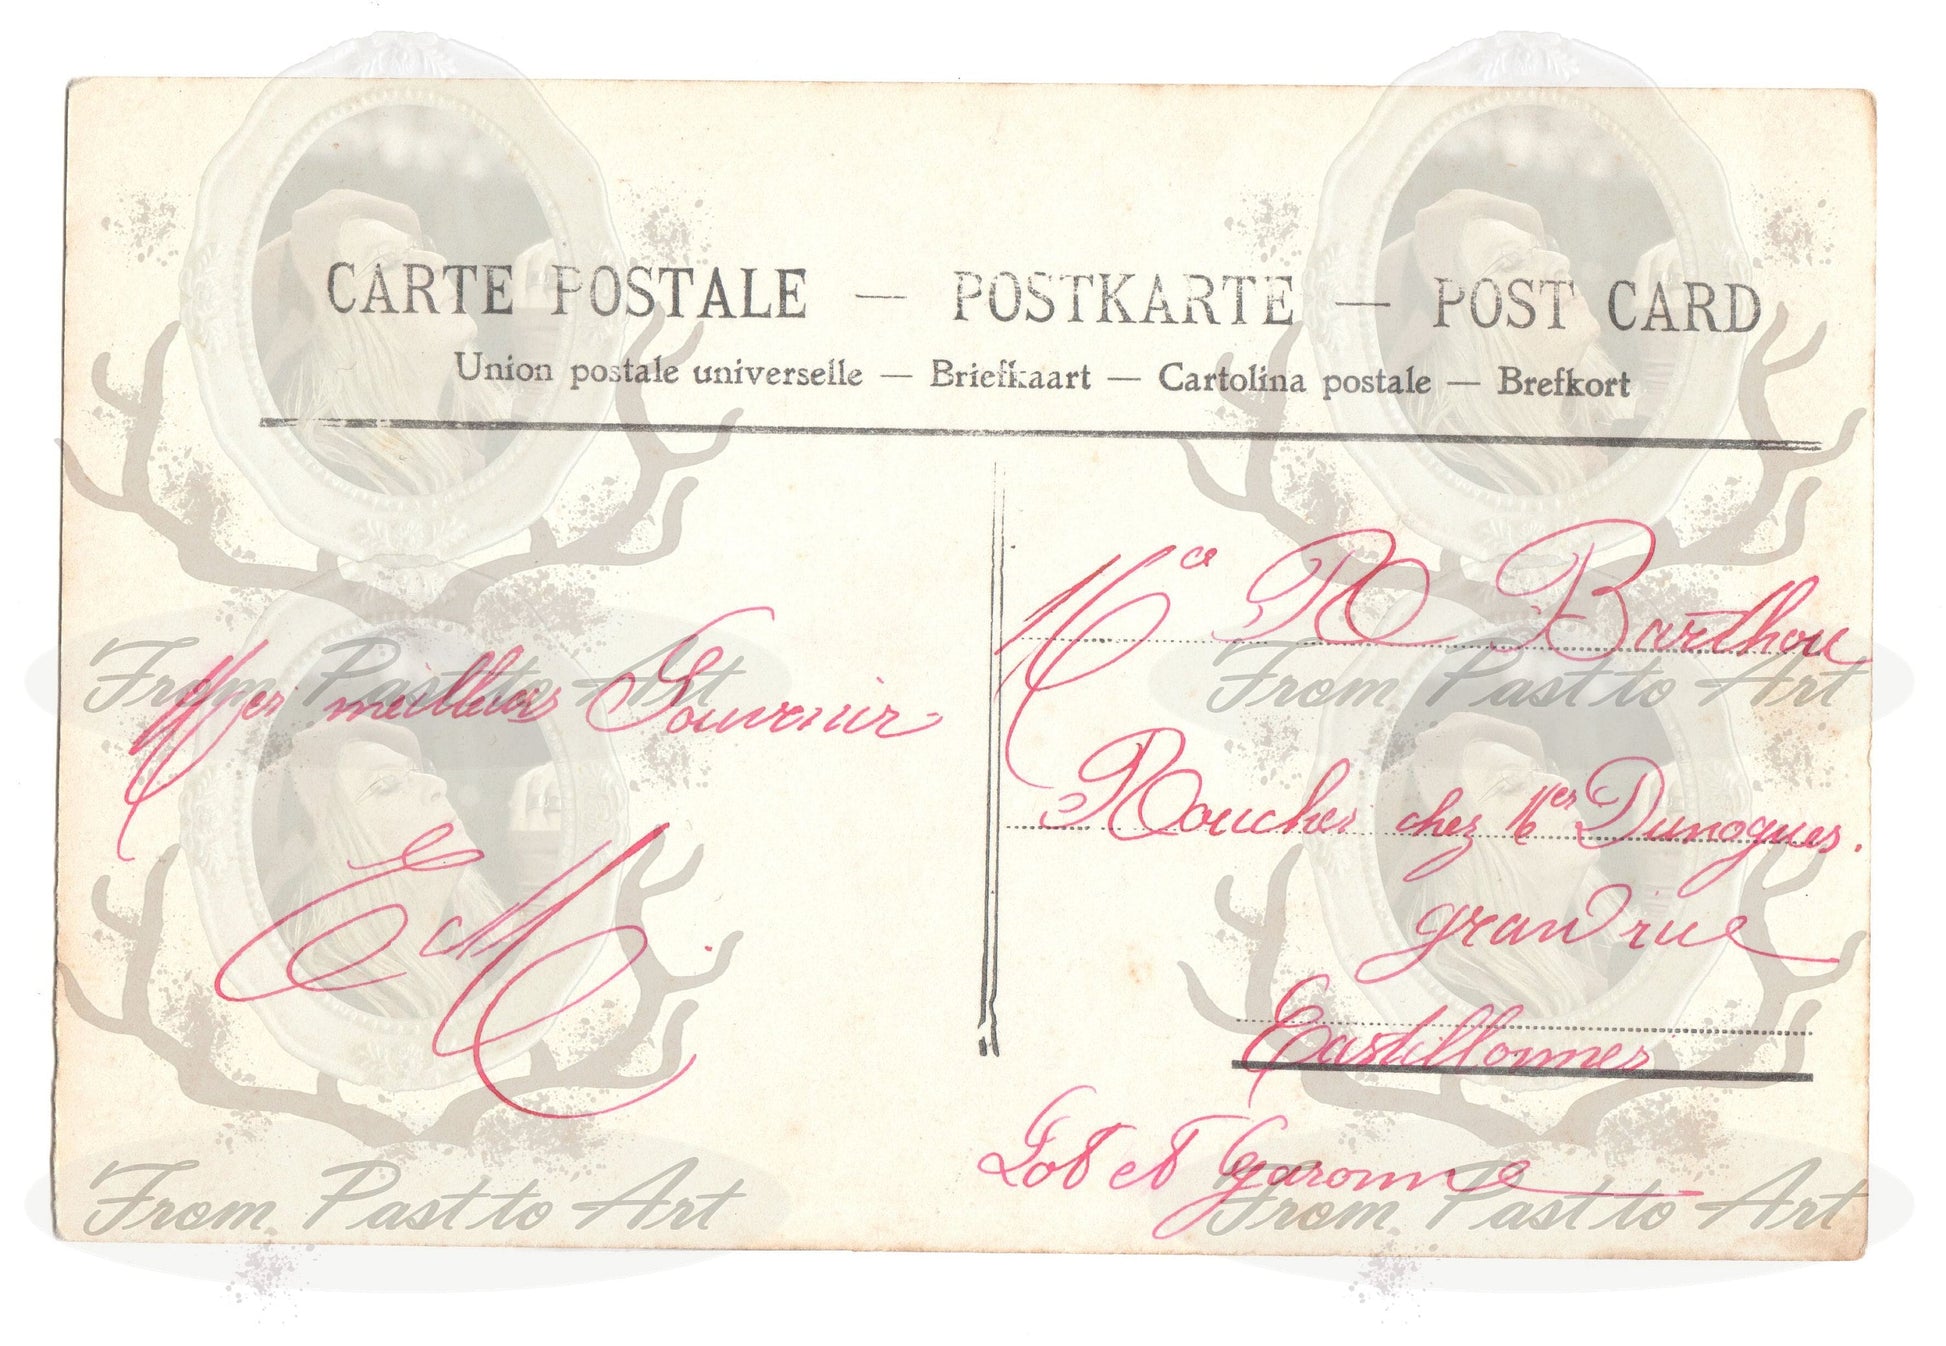 CARTE POSTALE — POSTKARTE — POST CARD
Union postale universelle — Briefkaart — Cartolina postale — Brefkort
Mes meilleurs Souvenir
EM
R Barthou
Rouches chez Mer Dunogues.
grand rue
Castillonnes
Lot et Garonne
From Past to Art
From Past to Art
From Past to Art
From Past to Art